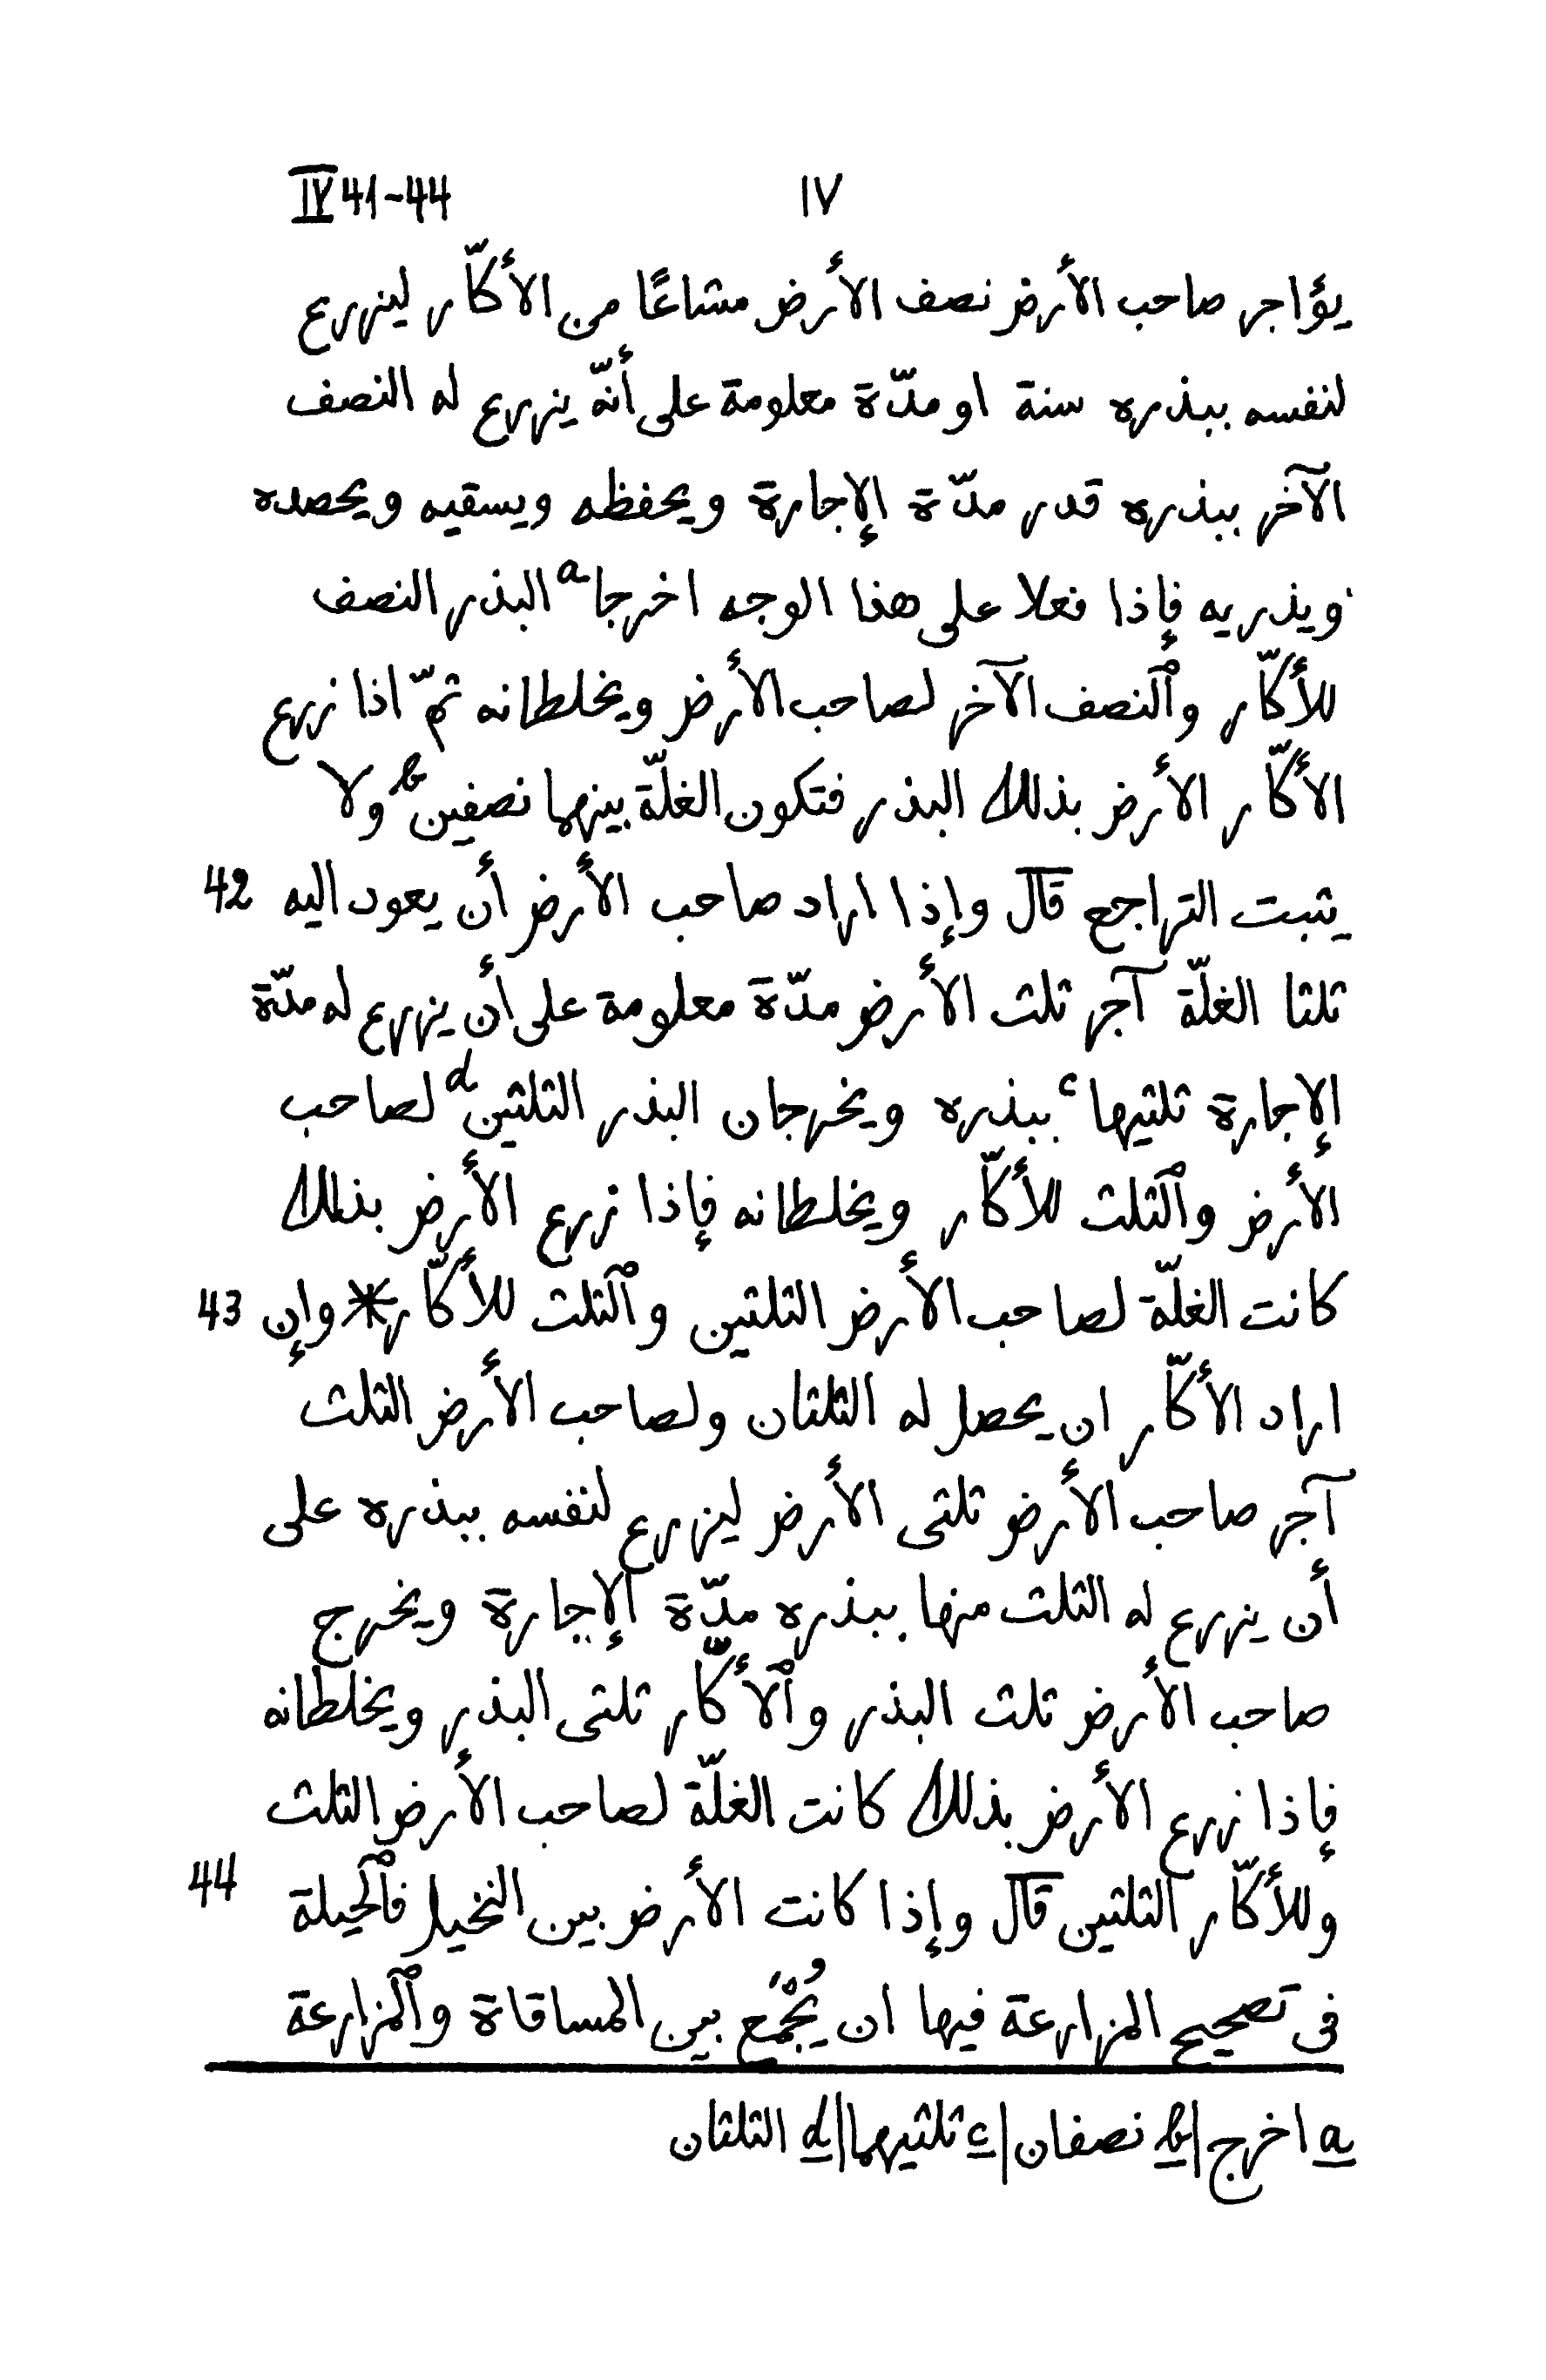 IV 41-44 ١٧
يؤاجر صاحب الأرض نصف الأرض مشاعًا من الأكّار ليزرع
لنفسه ببذره سنة او مدّة معلومة على أنّه يزرع له النصف
الآخر ببذره قدر مدّة الإجارة ويحفظه ويسقيه ويحصده
ويذريه فإذا فعلا على هذا الوجه اخرجا a البذر النصف
للأكّار وٱلنصف الآخر لصاحب الأرض ويخلطانه ثمّ اذا زرع
الأكّار الأرض بذلك البذر فتكون الغلّة بينهما نصفين b ولا
يثبت التراجع قال وإذا اراد صاحب الأرض أن يعود اليه 42
ثلثا الغلّة آجر ثلث الأرض مدّة معلومة على أن يزرع له مدّة
الإجارة ثلثيها c ببذره ويخرجان البذر الثلثين d لصاحب
الأرض وٱلثلث للأكّار ويخلطانه فإذا زرع الأرض بذلك
كانت الغلّة لصاحب الأرض الثلثين وٱلثلث للأكّار * وإن 43
اراد الأكّار ان يحصل له الثلثان ولصاحب الأرض الثلث
آجر صاحب الأرض ثلثى الأرض ليزرع لنفسه ببذره على
أن يزرع له الثلث منها ببذره مدّة الإجارة ويخرج
صاحب الأرض ثلث البذر وٱلأكّار ثلثى البذر ويخلطانه
فإذا زرع الأرض بذلك كانت الغلّة لصاحب الأرض الثلث
وللأكّار الثلثين قال وإذا كانت الأرض بين النخيل فٱلحيلة 44
فى تصحيح المزارعة فيها ان يُجْمَع بين المساقاة وٱلمزارعة
a اخرج | b نصفان | c ثلثيهما | d الثلثان